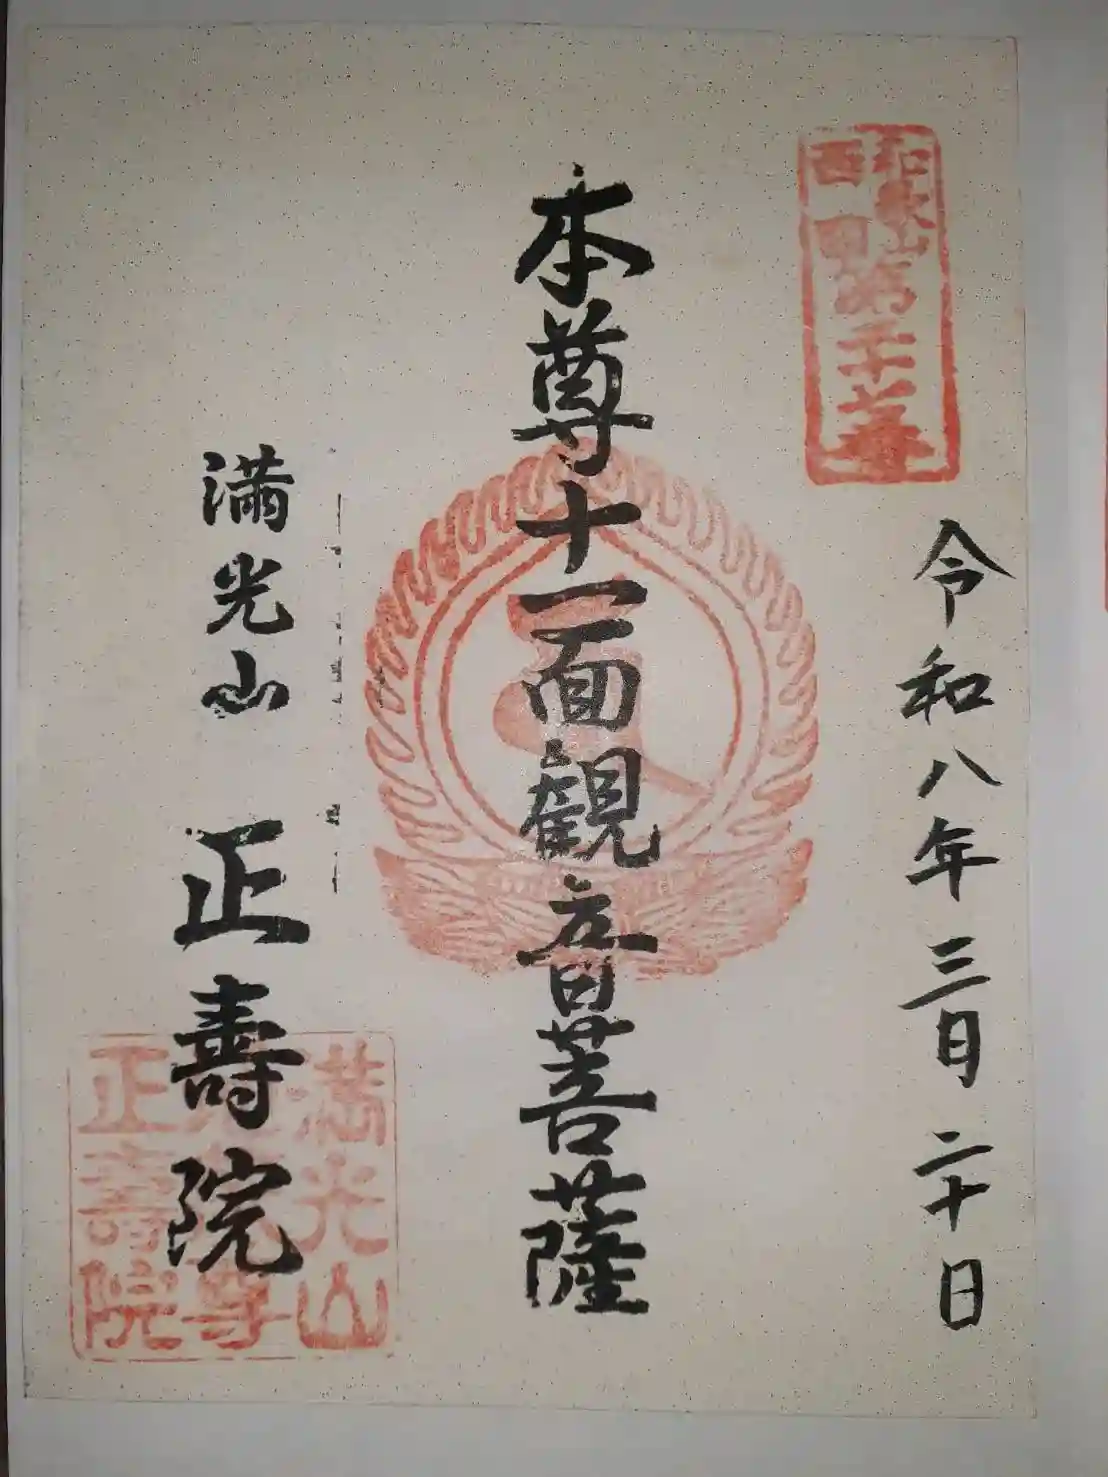 和歌山
西国
第
令和八年三月二十日
本尊十一面観音菩薩
満光山 正壽院
満光山
尊
正壽院